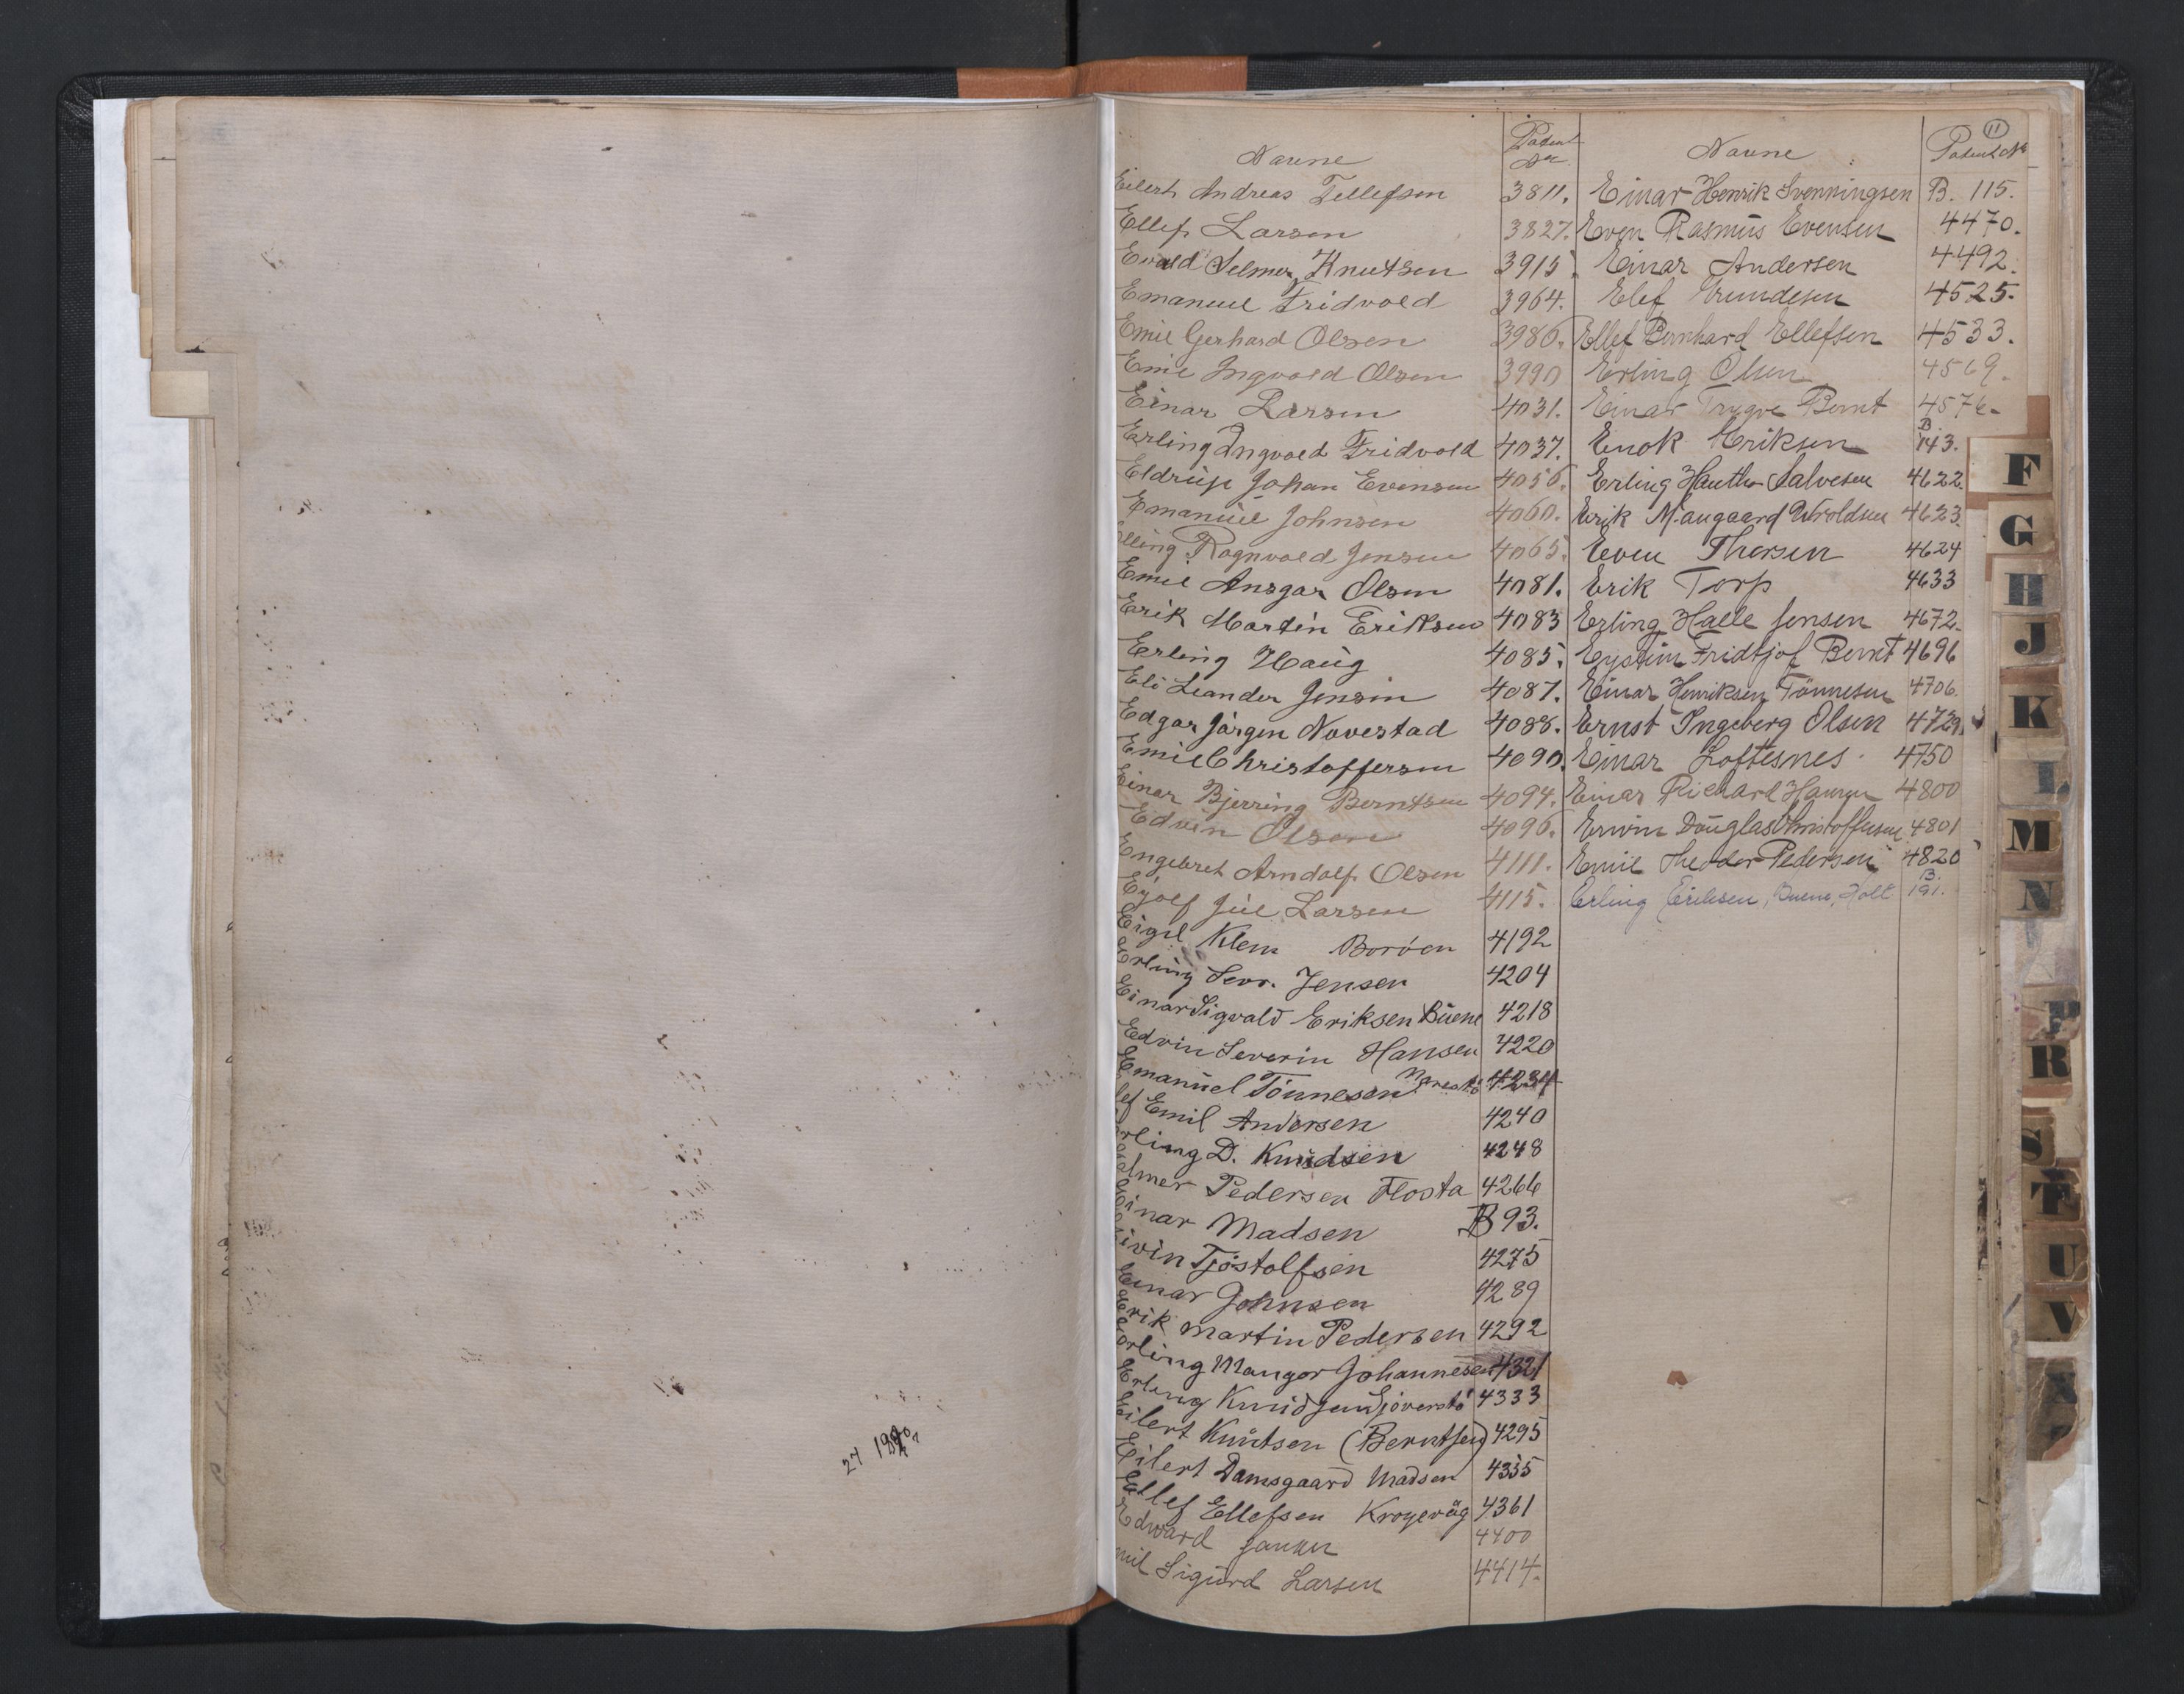 11
Navne Patent No
Eilert Andreas Tellefsen 3811.
Ellef Larsen 3827.
Evald Selmer Knutsen 3915.
Emanuel Fridvold 3964.
Emil Gerhard Olsen 3986.
Emil Ingvold Olsen 3990
Einar Larsen 4031.
Erling Ingvold Fridvold 4037.
Eldrup Johan Evensen 4056.
Emanuel Johnsen 4060.
Elling Ragnvald Jensen 4065.
Emil Ansgar Olsen 4081.
Erik Martin Eriksen 4083
Erling Haug 4085.
Eli Leander Jensen 4087.
Edgar Jörgen Novestad 4088.
Emil Christoffersen 4090.
Einar Bjerring Berntsen 4094.
Edvin Olsen 4096.
Engebret Arndolf Olsen 4111.
Ejolf Juel Larsen 4115.
Eigil Klem Boröen 4192
Erling Sevr. Jensen 4204
Einar Sigvald Eriksen Buene 4218
Edvin Severin Hansen 4220
Emanuel Tönnesen Narestö 4234
Emil Andersen 4240
Erling D. Knudsen 4248
Elmer Pedersen Flosta 4266
Einar Madsen B 93.
Eivin Tjöstolfsen 4275
Einar Johnsen 4289
Erik Martin Pedersen 4292
Erling Mangor Johannesen 4321
Erling Knudsen Sjöverstö 4333
Eilert Knutsen (Berntsen) 4295
Eilert Damsgaard Madsen 4335
Ellef Ellefsen Krogevåg 4361
Edward Jansen 4400
Emil Sigurd Larsen 4414.
Navne Patent No
Einar Henrik Svenningsen B. 115.
Even Rasmus Evensen 4470.
Einar Andersen 4492.
Elef 4525.
Ellef Bernhard Ellefsen 4533.
Erling Olsen 4569.
Einar Trygve Bernt 4576.
Enok Eriksen B 143.
Erling Salvesen 4622.
Erik Maugaard Uroldsen 4623.
Even Thorsen 4624
Erik Torp 4633
Erling Halle Jensen 4672.
Eystein Fridtjof Bernt 4696
Einar Henriksen Tönnesen 4706.
Ernst Ingeberg Olsen 4729.
Einar Loftesnes 4750
Einar Richard Hansen 4800
Erwin Douglas Christoffersen 4801
Emil Theodor Pedersen 4820
Erling Eriksen, Buene, Holt B. 191.
F
G
H
J
K
L
M
N
P
R
S
T
U
V